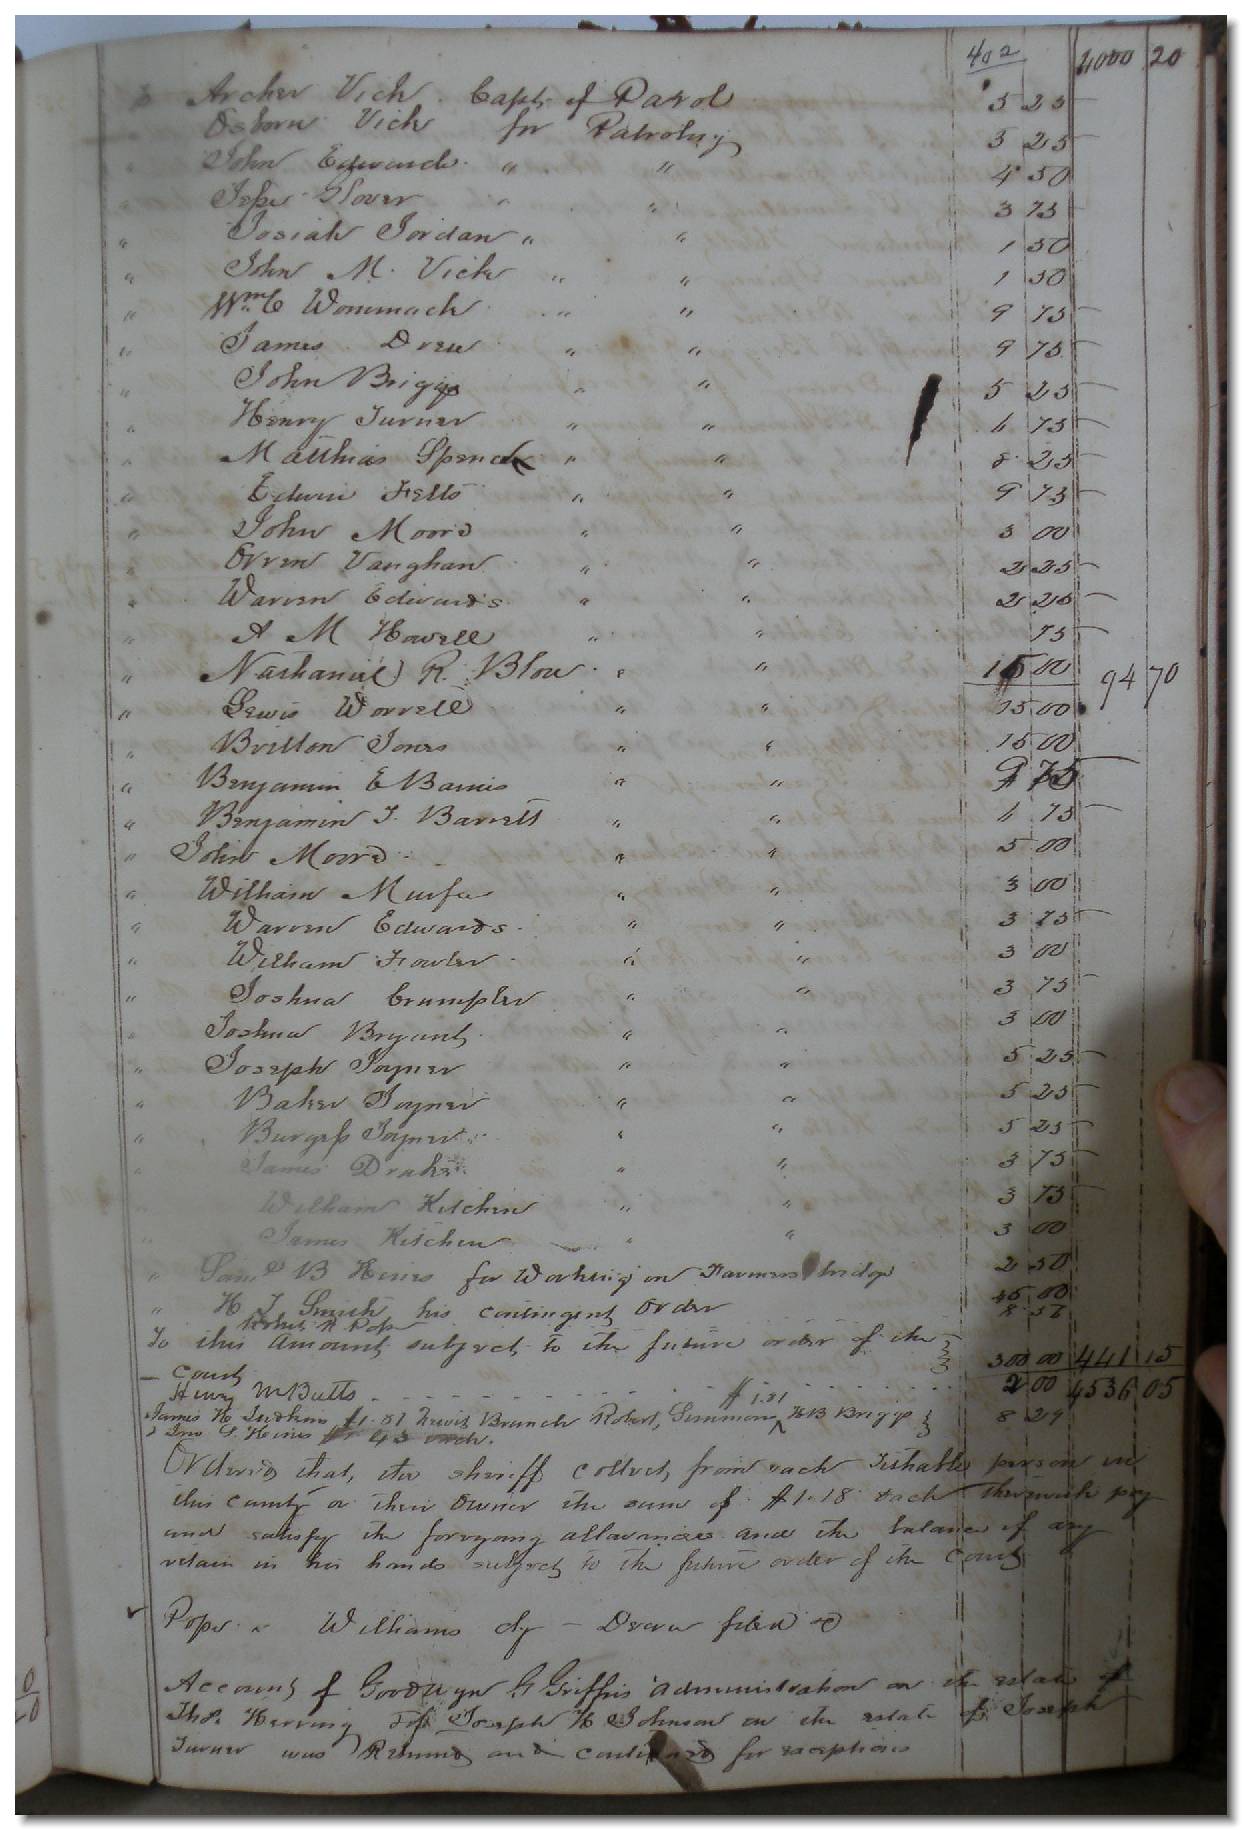 402 4000 20
To Archer Vick Capt of Patrol 5 25
Osborn Vick for Patroling 5 25
" John Edwards " " 4 50
" Jesse Glover " " 3 75
" Josiah Jordan " " 1 50
" John M. Vick " " 1 50
" Wm C Wommack " " 9 75
" James Drew " " 9 75
" John Briggs " " 5 25
" Henry Turner " " 6 75
" Matthias Spence " " 8 25
" Edwin Felts " " 9 75
" John Moore " " 3 00
" Orren Vaughan " " 2 25
" Warren Edwards " " 2 25
" A M Howell " " 75
" Nathaniel R. Blow " " 15 00 94 70
" Lewis Worrell " " 15 00
" Britton Jones " " 15 00
" Benjamin E Barnes " " 9 75
" Benjamin T. Barrett " " 6 75
" John Moore " " 5 00
" William Murfee " " 3 00
" Warren Edwards " " 3 75
" William Fowler " " 3 00
" Joshua Crumpler " " 3 75
" Joshua Bryant " " 3 00
" Joseph Joyner " " 5 25
" Baker Joyner " " 5 25
" Burgess Joyner " " 5 25
" James Drake " " 3 75
" William Kitchen " " 3 75
" James Kitchen " " 3 00
" Saml B Hines for Working on Farmers bridge 2 50
" H J Smith his contingent order 45 00
R Pope 8 56
To this Amount subject to the future order of the
Court 300 00 441 15
Henry M Butts 2 00 4536 05
James H Judkins $1.81 Lewis Branch Robert, Simmons $1.81 HB Briggs 8 29
& Jno L. Hines each.
Ordered that, the sheriff collect, from each Tithable person in
this county or their owner the sum of $1.18 each therewith pay
and satisfy the foregoing allowances and the balance if any
retain in his hands subject to the future order of the Court
Pope v Williams dy - Decree filed
Account of Goodwyn G Griffin administration on the estate of
Thos. Herring Joseph H Johnson on the estate of Joseph
Turner was Returned and continued for exceptions